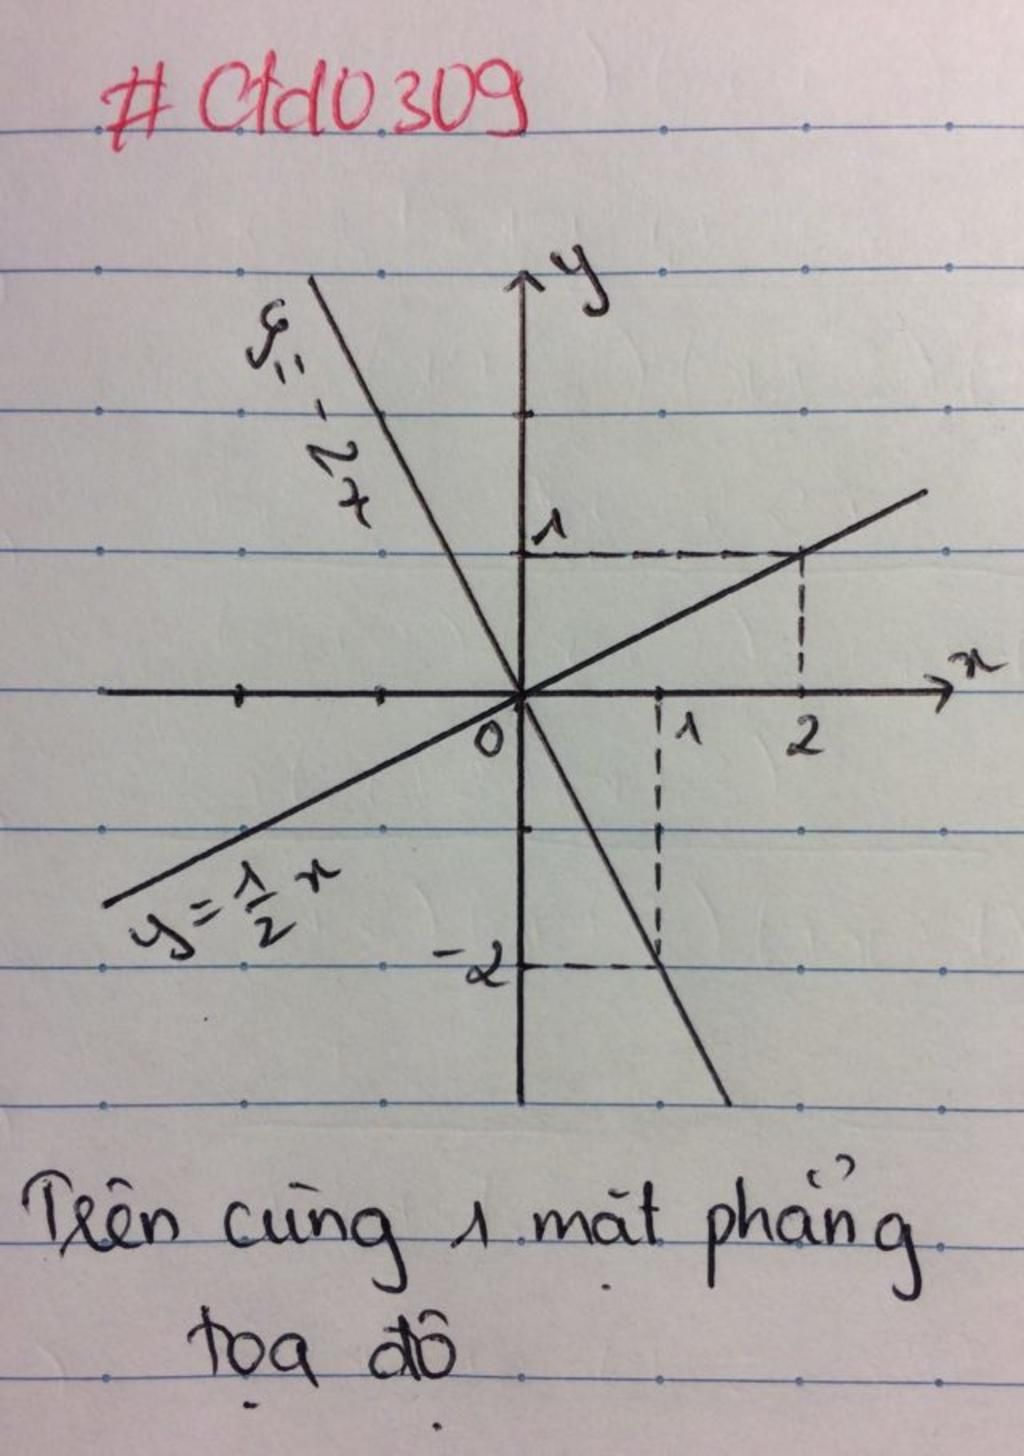 #Ctd0309
y
y = -2x
1
x
0
1
2
y = 1/2 x
-2
Trên cùng 1 mặt phẳng
tọa độ